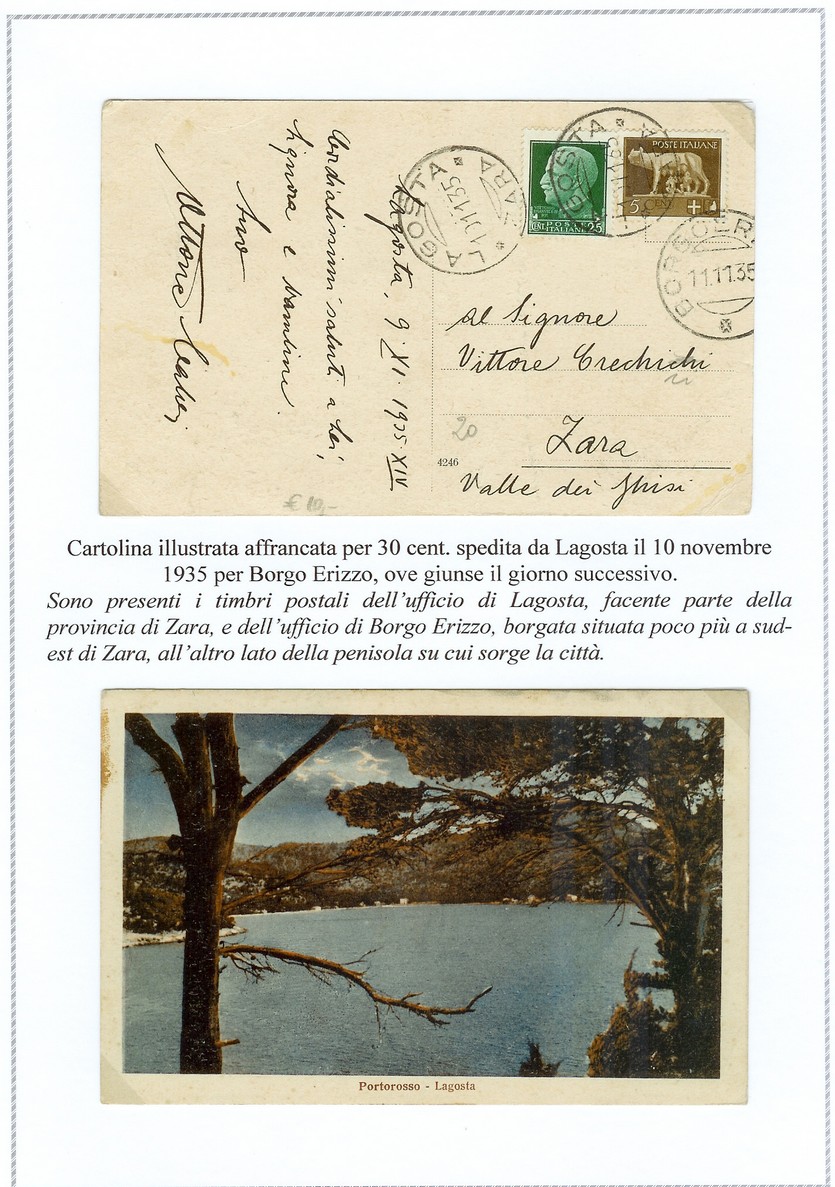 Lagosta, 9.XI.1935.XIV
Cordialissimi saluti a Lei,
Signora e bambini.
Suo
LAGOSTA
ZARA
10.11.35
LAGOSTA
POSTE ITALIANE
CENT. 25
POSTE ITALIANE
5 CENT
BORGO ER
11.11.35
Al Signore
Vittore Crechichi
Zara
Valle dei Ghisi
20
4246
€ 10,-
Cartolina illustrata affrancata per 30 cent. spedita da Lagosta il 10 novembre
1935 per Borgo Erizzo, ove giunse il giorno successivo.
Sono presenti i timbri postali dell'ufficio di Lagosta, facente parte della
provincia di Zara, e dell'ufficio di Borgo Erizzo, borgata situata poco più a sud-
est di Zara, all'altro lato della penisola su cui sorge la città.
Portorosso - Lagosta